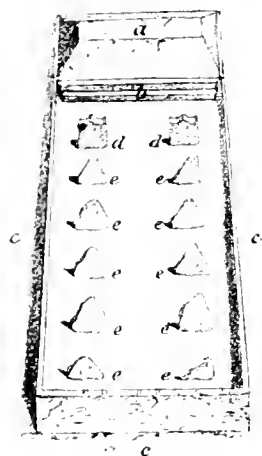 a
b
d d
e e
e e
c c
e e
e e
e e
c